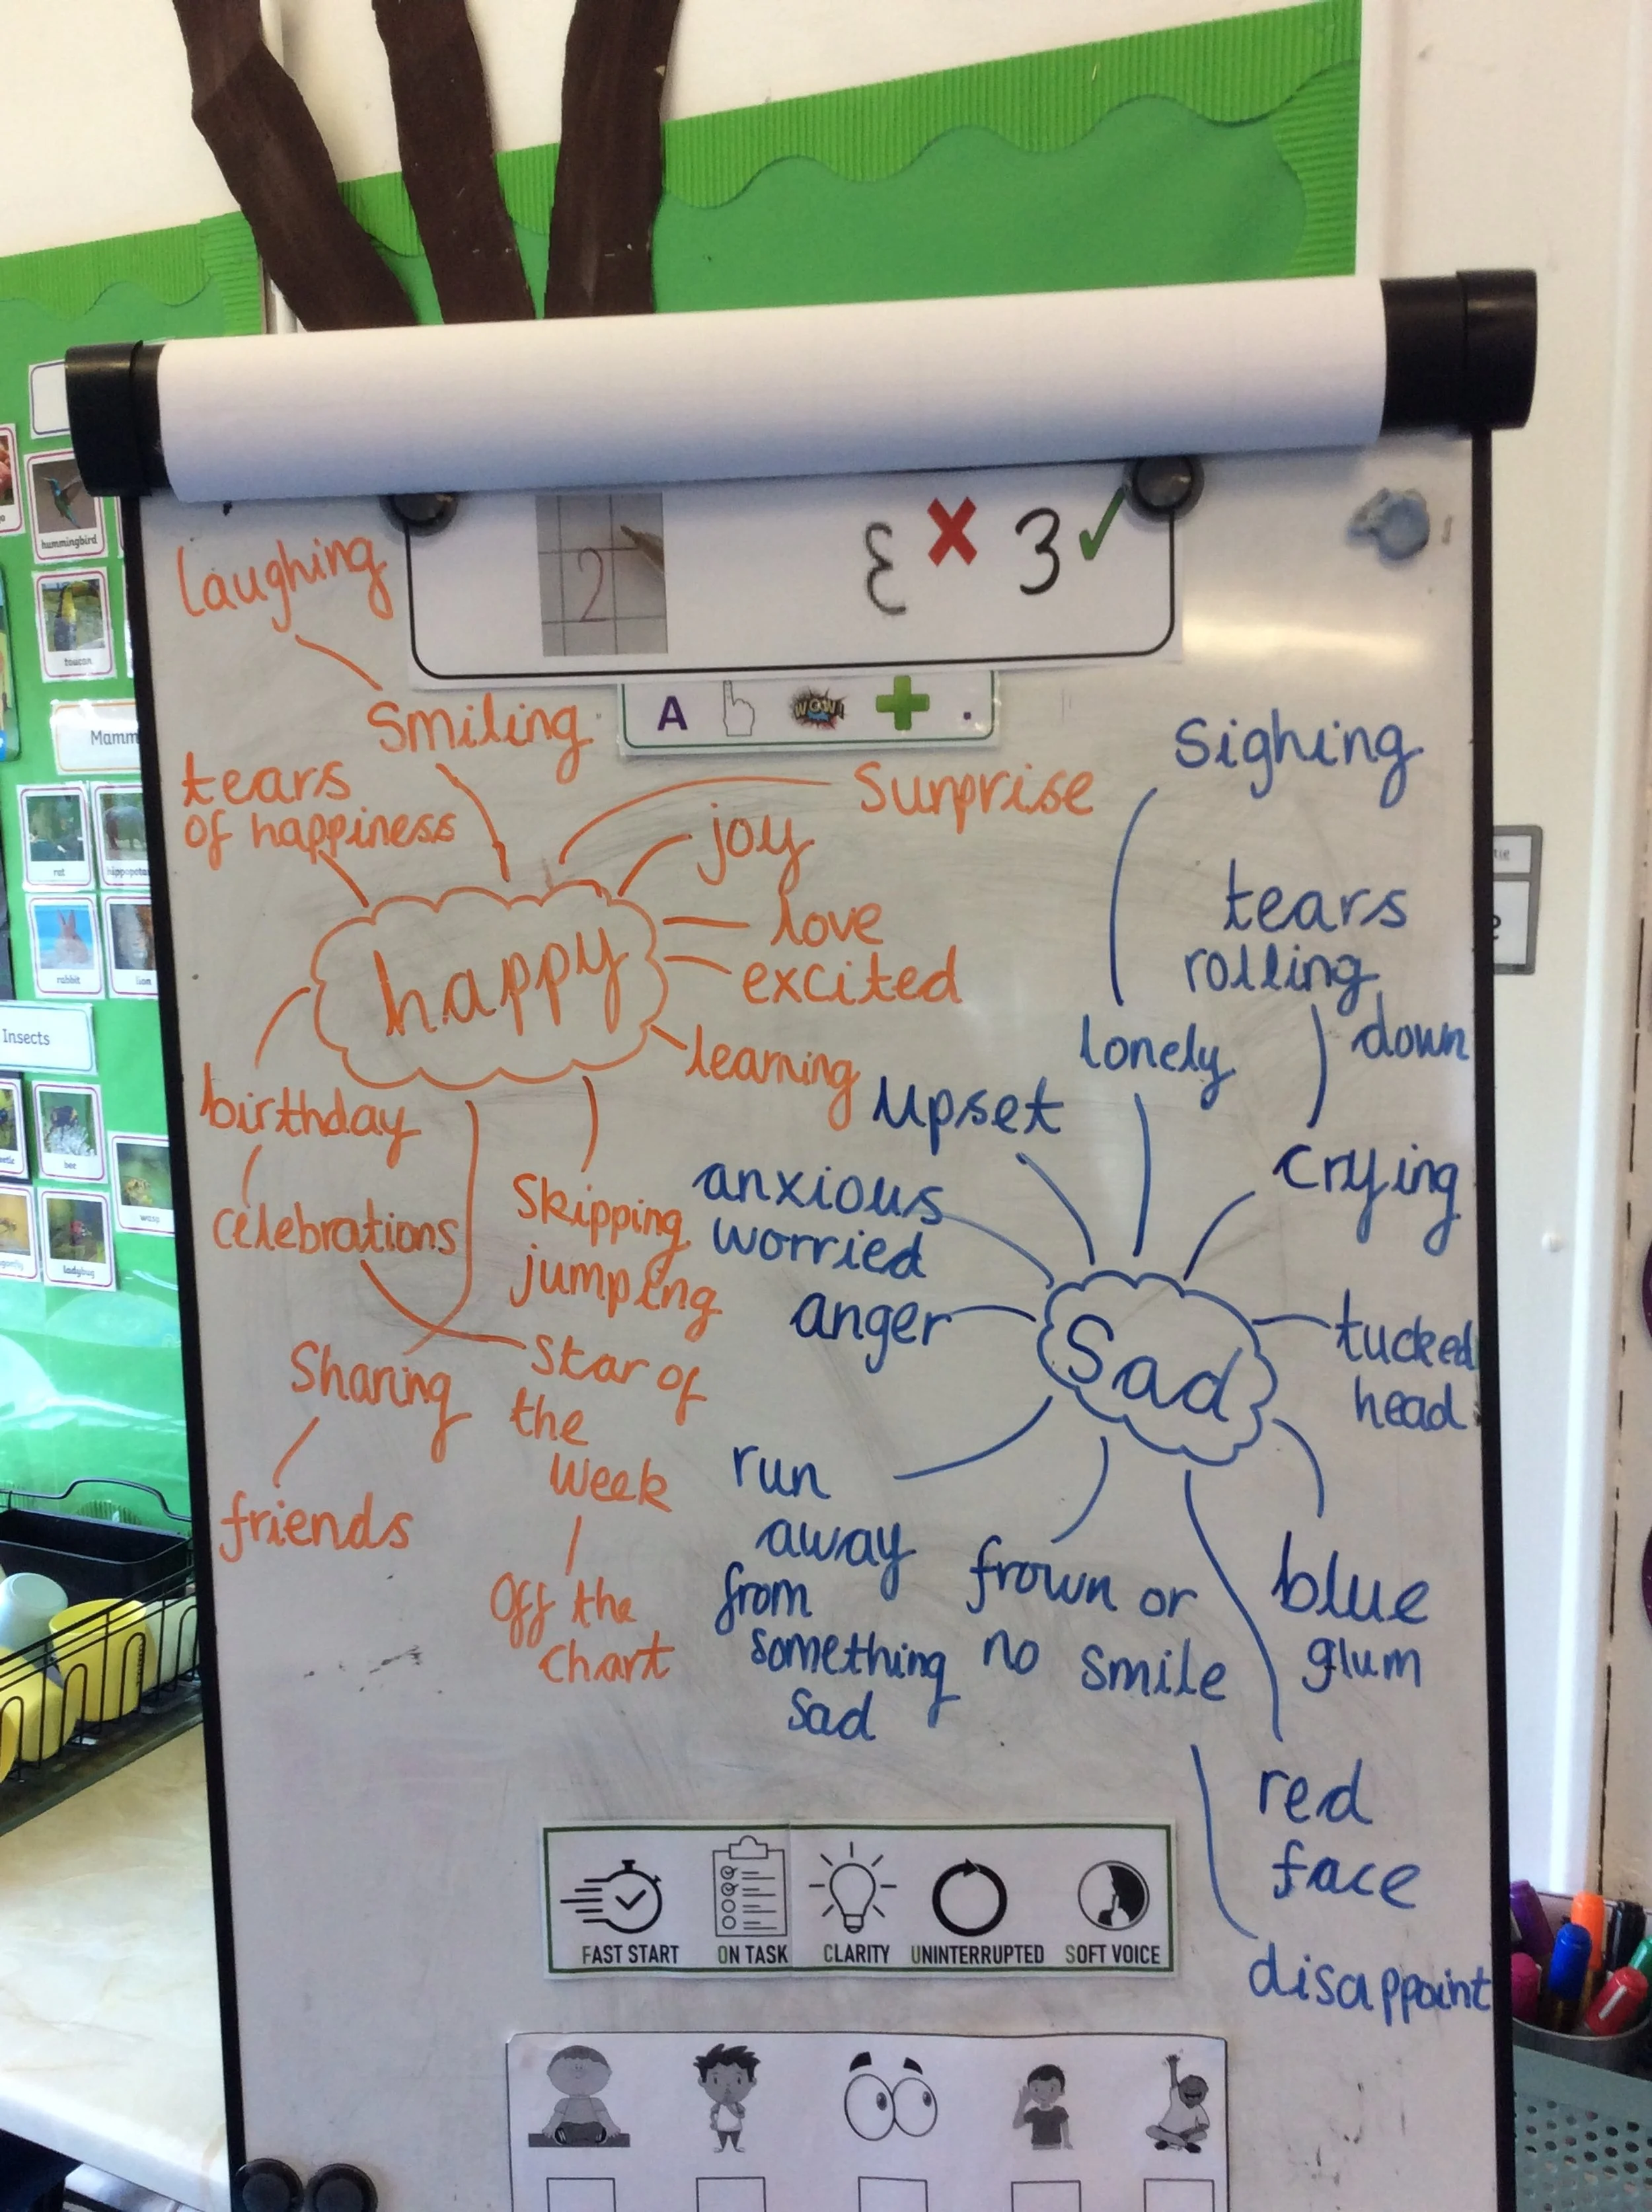 hummingbird
toucan
Mamm
rat
rabbit
lion
Insects
bee
wasp
ladybug
2
3
A
WOW!
+
.
laughing
smiling
tears
of happiness
surprise
joy
love
excited
happy
learning
birthday
celebrations
skipping
jumping
sharing
star of
the
week
friends
off the
chart
sighing
tears
rolling
down
lonely
upset
crying
anxious
worried
anger
Sad
tucked
head
run
away
from
something
sad
frown or
no smile
blue
glum
red
face
disappoint
FAST START
ON TASK
CLARITY
UNINTERRUPTED
SOFT VOICE